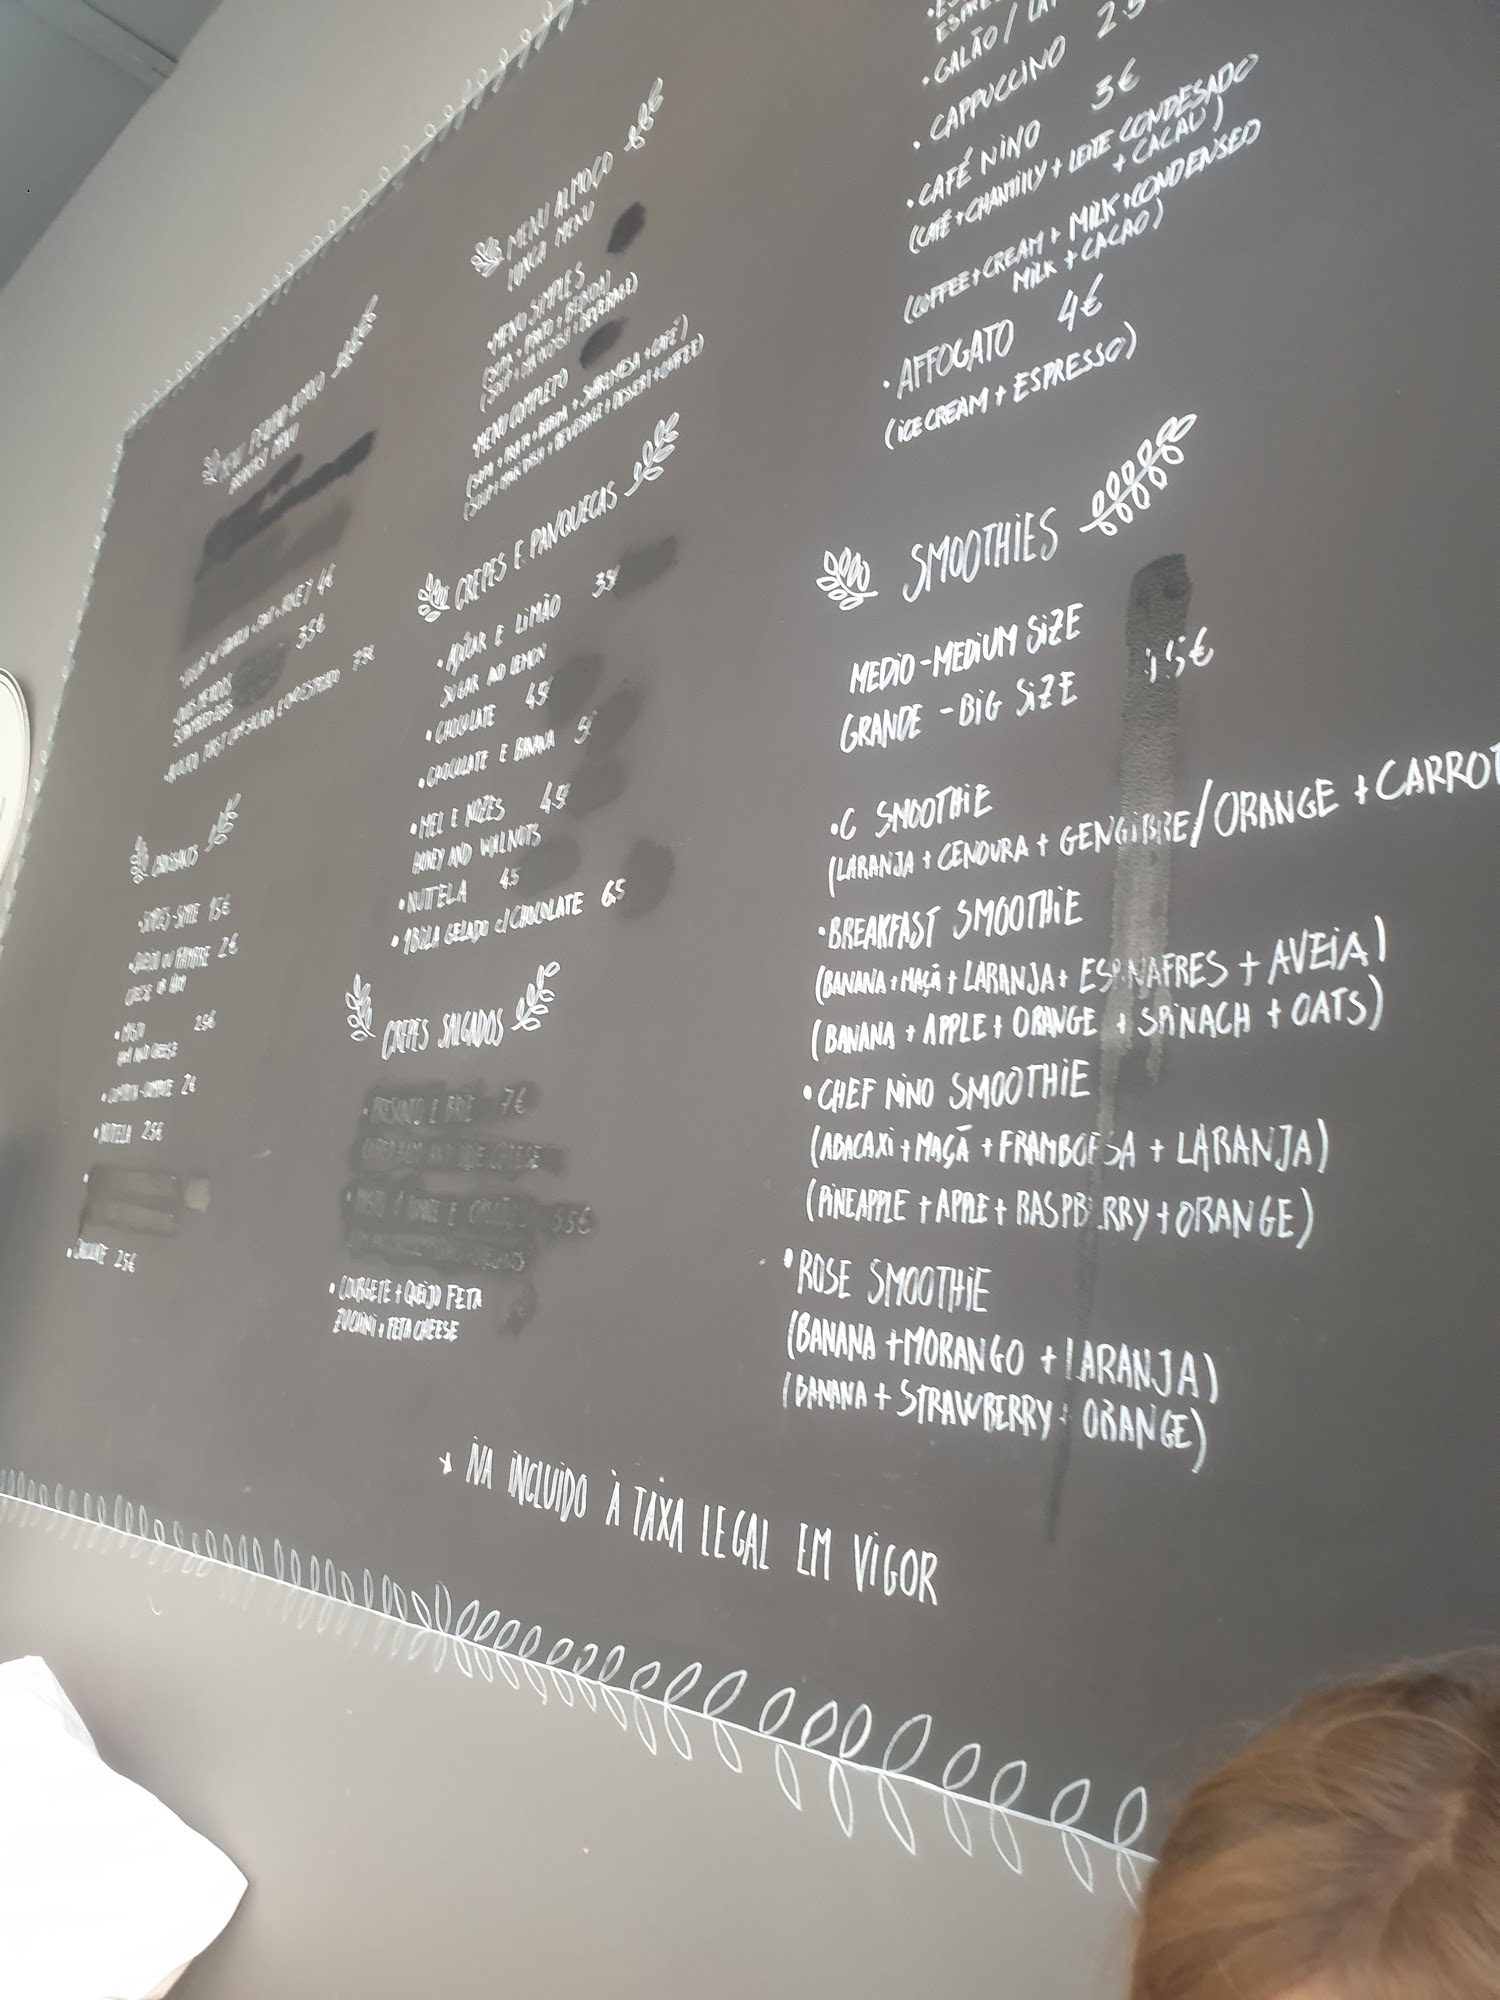 MENU PEQUENO-ALMOÇO
BREAKFAST MENU
4€
OVOS MEXIDOS 3.5€
SCRAMBLED EGGS
7.5€
CROISSANTS
SIMPLES-SIMPLE 1.5€
QUEIJO OU FIAMBRE 2€
CHEESE OR HAM
•MISTO 2.5€
HAM AND CHEESE
2€
•NUTELA 2.5€
•CHOCOLATE 2.5€
MENU ALMOÇO
LUNCH MENU
•MENU SIMPLES
(SOPA + PRATO + BEBIDA)
(SOUP + MAIN DISH + BEVERAGE)
•MENU COMPLETO
(SOPA + PRATO + BEBIDA + SOBREMESA + CAFÉ)
(SOUP + MAIN DISH + BEVERAGE + DESSERT + COFFEE)
CREPES E PANQUECAS
•AÇÚCAR E LIMÃO
SUGAR AND LEMON
•CHOCOLATE 4.5€
•CHOCOLATE E BANANA 5€
•MEL E NOZES 4.5€
HONEY AND WALNUTS
•NUTTELA 4.5
•1BOLA GELADO C/CHOCOLATE 6.5
CREPES SALGADOS
•PRESUNTO E BRIE 7€
•COURGETE + QUEIJO FETA
ZUCHINI + FETA CHEESE
•GALÃO /
•CAPPUCCINO
•CAFÉ NINO 3€
(CAFÉ + CHANTILLY + LEITE CONDESADO
+ CACAU)
(COFFEE + CREAM + MILK + CONDENSED
MILK + CACAO)
•AFFOGATO 4€
(ICE CREAM + ESPRESSO)
SMOOTHIES
MEDIO-MEDIUM SIZE
GRANDE-BIG SIZE
•C SMOOTHIE
(LARANJA + CENOURA + GENGIBRE/ORANGE + CARROT
•BREAKFAST SMOOTHIE
(BANANA + MAÇÃ + LARANJA + ESPINAFRES + AVEIA)
(BANANA + APPLE + ORANGE + SPINACH + OATS)
•CHEF NINO SMOOTHIE
(ABACAXI + MAÇÃ + FRAMBOESA + LARANJA)
(PINEAPPLE + APPLE + RASPBERRY + ORANGE)
•ROSE SMOOTHIE
(BANANA + MORANGO + LARANJA)
(BANANA + STRAWBERRY + ORANGE)
* IVA INCLUIDO À TAXA LEGAL EM VIGOR